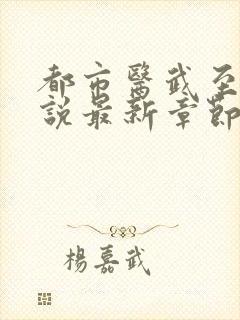 都市醫武至
說最新章節
楊嘉武